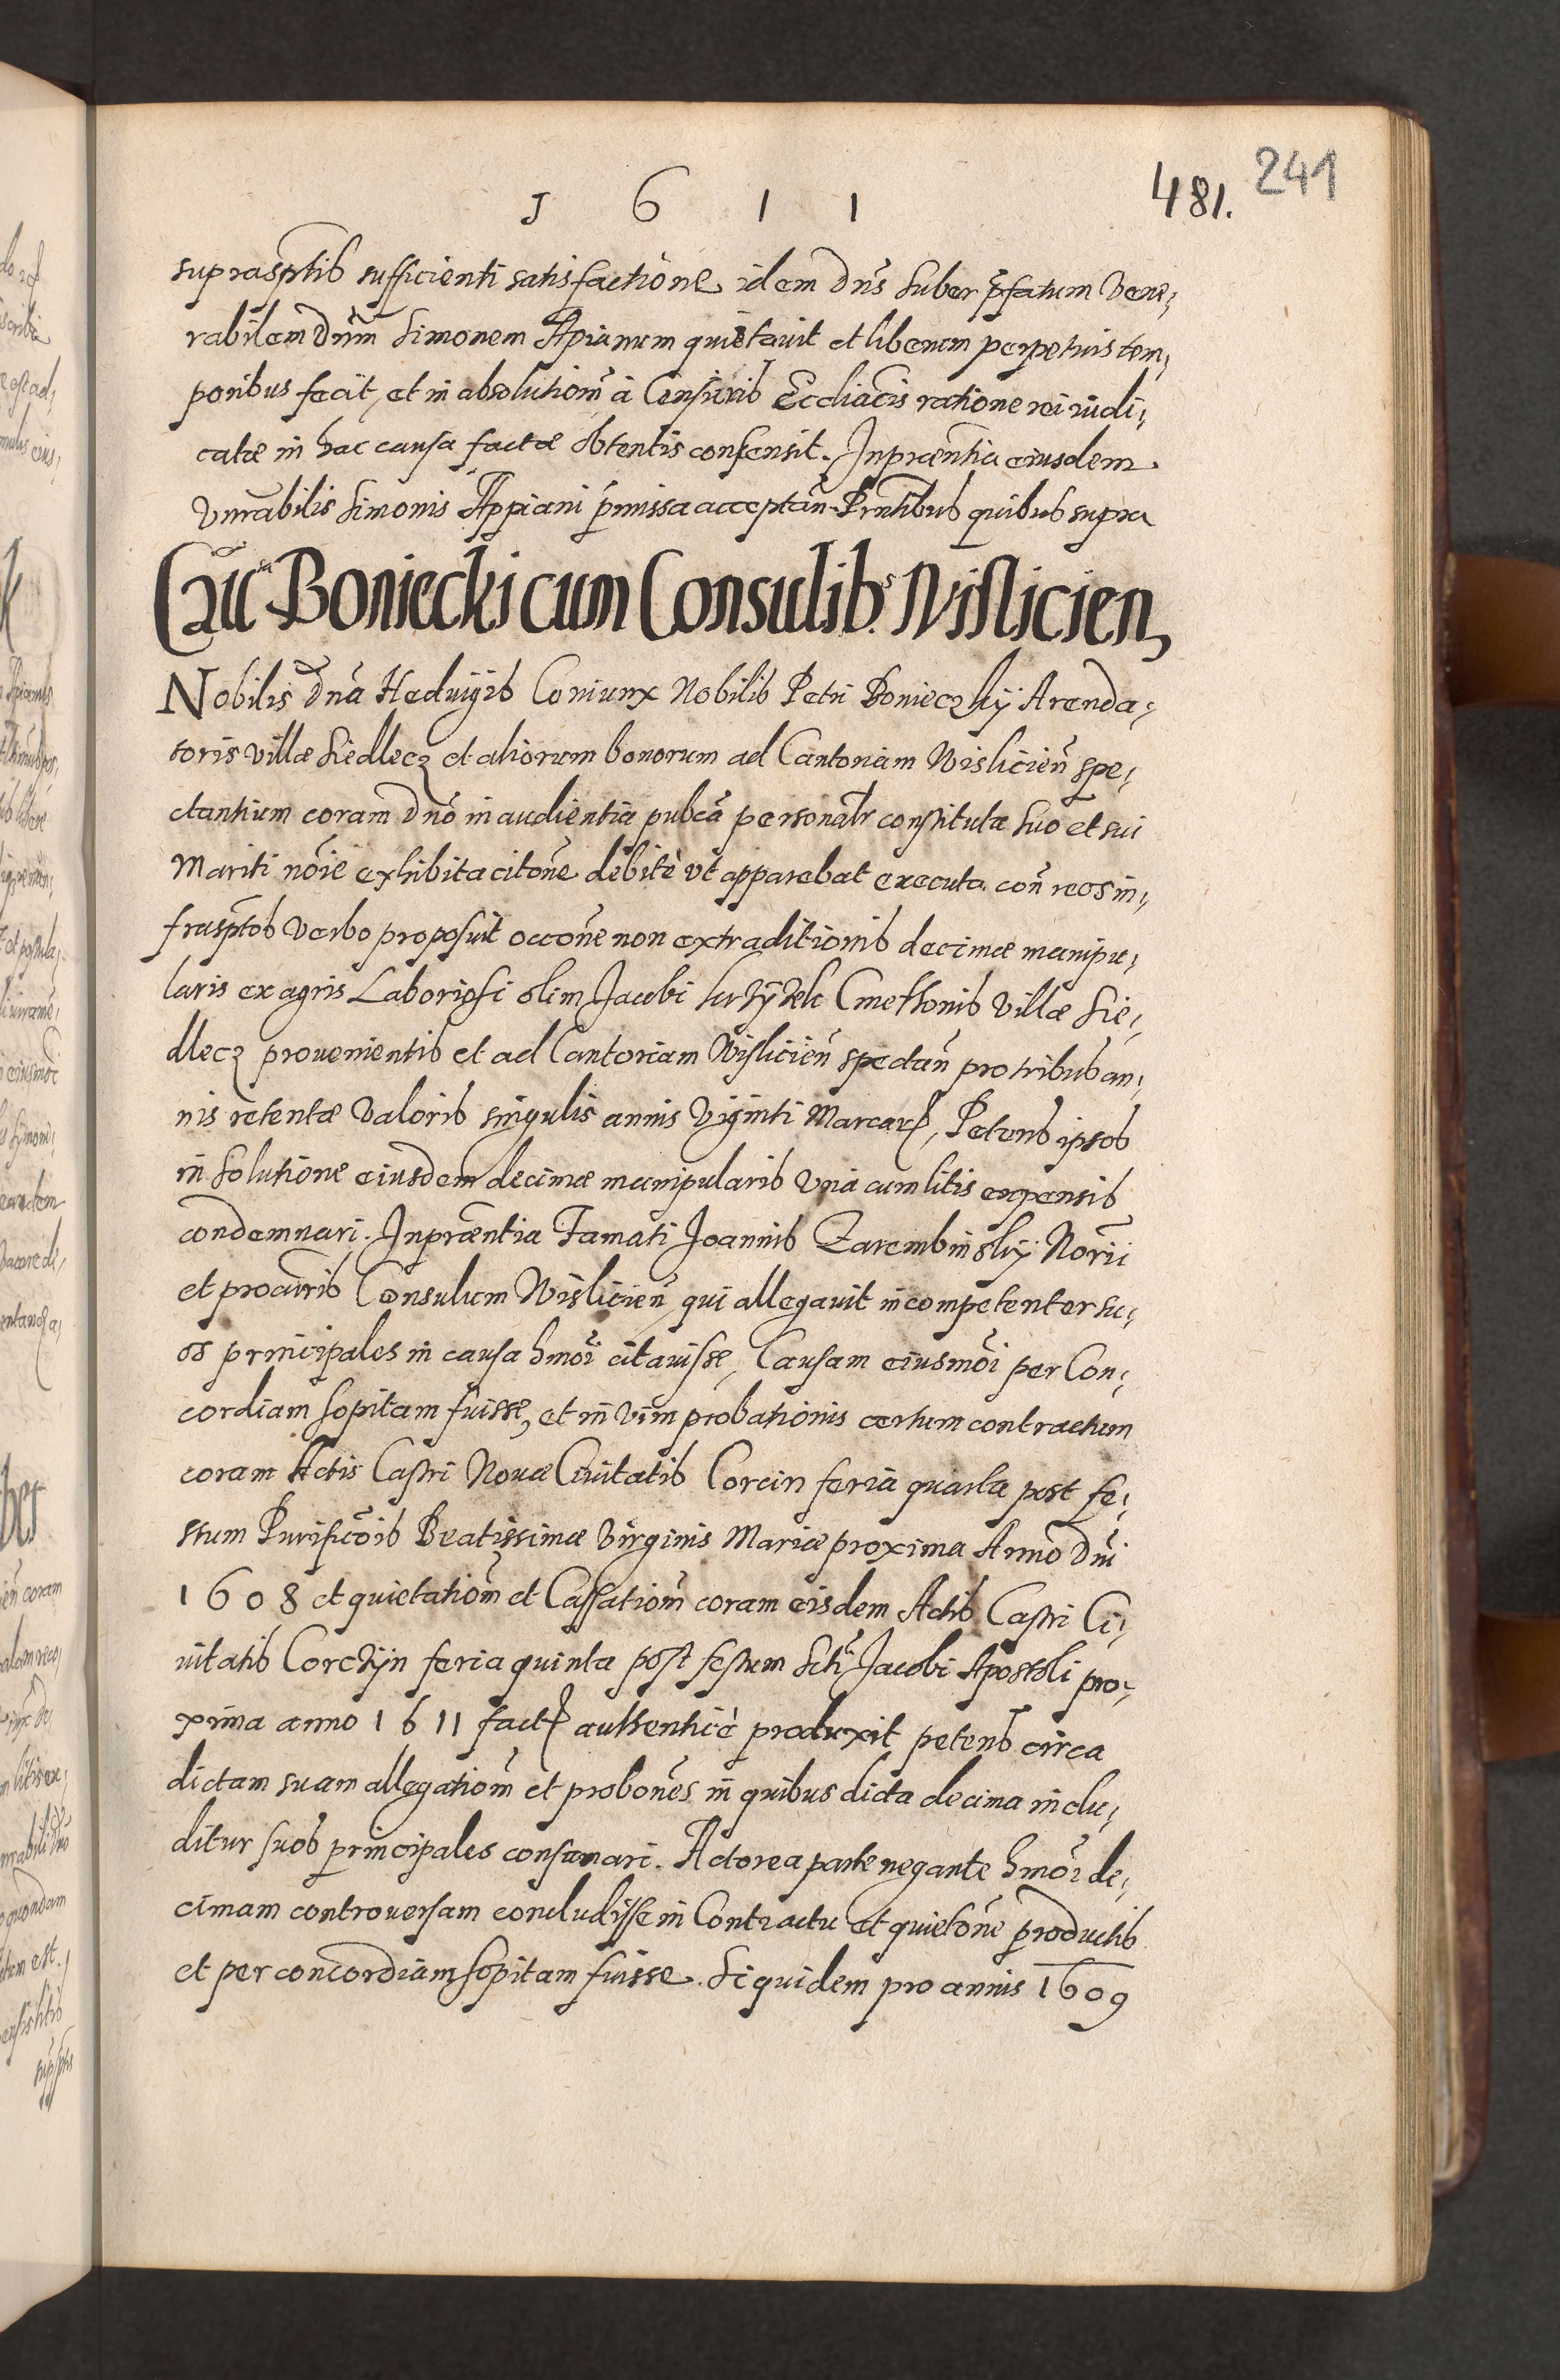 1 6 1 1
481. 241
suprasptis sufficienti satisfactione idem Dns Suber p̄fatum Vene,
rabilem Dnm Simonem Apianum quietauit et liberum perpetuis tem,
poribus fecit, et in absolutiom̄ à Censuris Ecclīacis ratione rei iudi,
catæ in hac causa factæ obtentis consensit. In præntia eiusdem
Vnrabilis Simonis Appiani p̄missa acceptān. Prntibus quibus supra
Cau͂ Boniecki cum Consulib. Wislicien,
Nobilis Dnā Hedvigis Coniunx Nobilis Petri Bonieczky Arenda,
toris villæ Siedlecz et aliorum bonorum ad Cantoriam Wisliciēn spe,
ctantium coram Dnō in audientia pubcā personalr constituta suo et sui
Mariti nōie exhibita citōne debitè vt apparebat executa con̄ reos in,
frasptos verbo proposuit occōne non extraditionis decimæ manipu,
laris ex agris Laboriosi olim Jacobi Cmethonis villæ Sie,
dlecz prouenientis et ad Cantoriam Wisliciēn spectān pro tribus an,
nis retentæ valoris singulis annis viginti Marcar, Petens ipsos
in solutione eiusdem decimæ manipularis vnà cum litis expensis
condemnari. In præntia Famati Joannis Zarembinsky Norii
et procūris Consulum Wisliciēn qui allegauit incompetenter su,
os principales in causa hmōi citauisse, Causam eiusmōi per Con,
cordiam sopitam fuisse, et in vim probationis certum contractum
coram Actis Castri Nouæ Ciuitatis Corcin feria quarta post fe,
stum Purificōis Beatissimæ Virginis Mariæ proxima Anno Dni
1608 et quietatiom̄ et Cassatiom̄ coram eisdem Actis Castri Ci,
uitatis Corczyn feria quinta post festum Scti Jacobi Apostoli pro,
xima anno 1611 fact authenticè produxit petens circa
dictam suam allegatiom̄ et probōnes in quibus dicta decima inclu,
ditur suos principales conseruari. Actorea parte negante hmōi de,
cimam controuersam concludisse in Contractu et quietōne productis
et per concordiam sopitam fuisse. Siquidem pro annis 1609